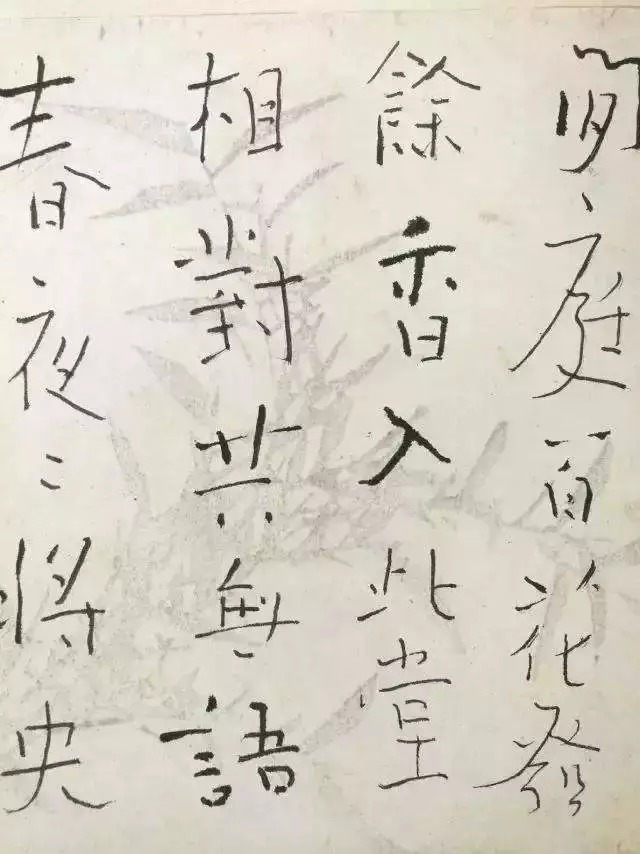 閒庭百花發
餘香入此堂
相對共無語
春夜〻将央